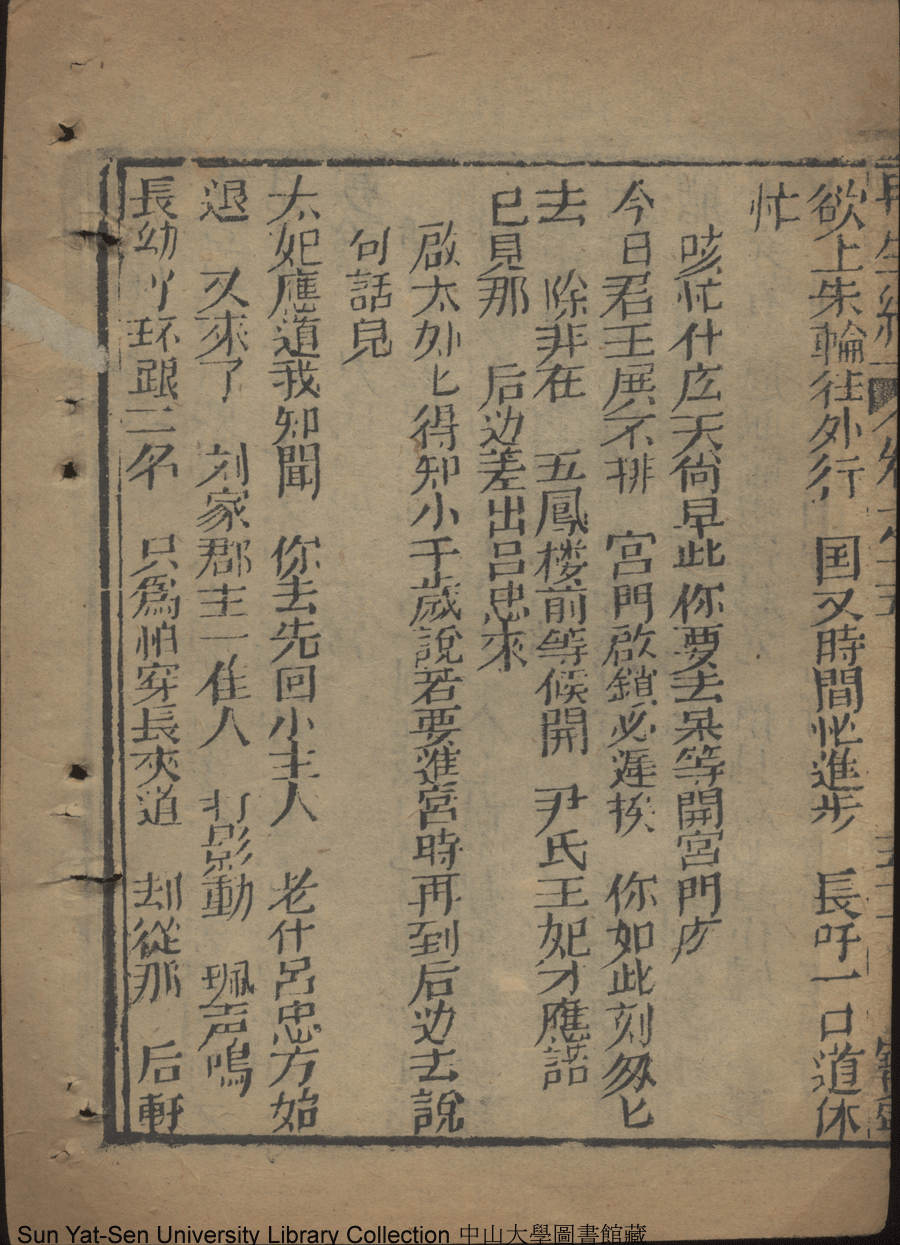 再生緣
欲上朱輪往外行　国又時間忙進步　長吁一口道休
忙
咳忙什庅天尚早此你要去呆等開宮門庅
今日君王展不排　宮門啟鎖必遲挨　你如此刻匆匕
去　除非在　五鳳楼前等候開　尹氏王妃才應諾
已見那　后边差出呂忠來
啟太外匕得知小千歲說若要進宮時再到后边去說
句話兒
太妃應道我知聞　你去先回小主人　老什呂忠方始
退　又來了　刘家郡主一佳人　打影動　珮声鳴
長幼丫环跟二名　只爲怕穿長夾道　刦從那　后軒
Sun Yat-Sen University Library Collection 中山大學圖書館藏